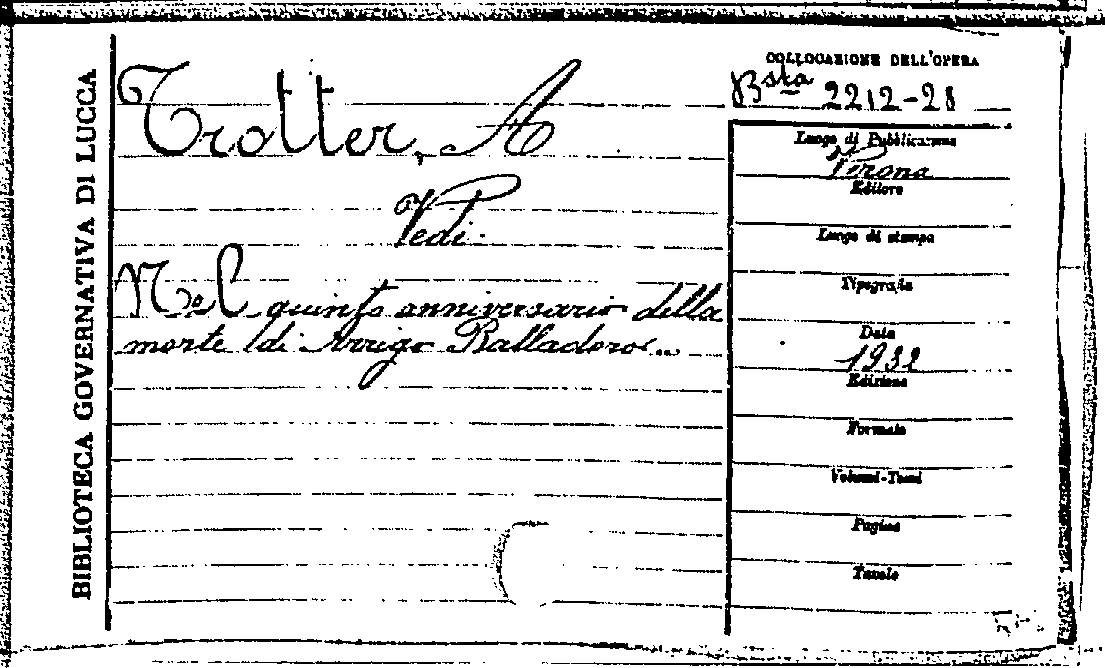 BIBLIOTECA GOVERNATIVA DI LUCCA
Trotter, A
Vedi.
Nel quinto anniversario della
morte di Arrigo Balladoro...
COLLOCAZIONE DELL'OPERA
Bsta 2212-28
Luogo di Pubblicazione
Verona
Editore
Luogo di stampa
Tipografia
Data
1932
Edizione
Formato
Volumi-Tomi
Pagine
Tavole